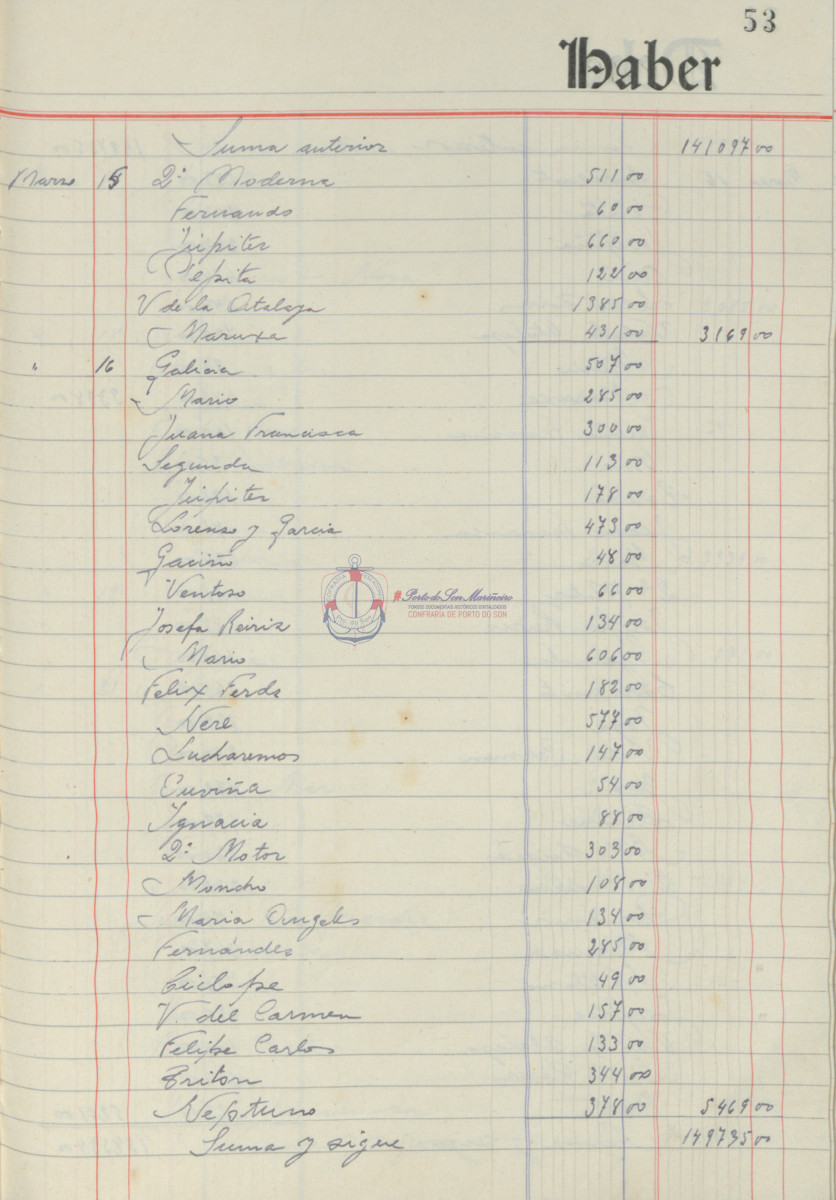 53
Haber
Suma anterior 141097 00
Marzo 15 2ª Moderna 511 00
Fernando 60 00
Júpiter 660 00
Pepita 122 00
V de la Atalaya 1385 00
Maruxa 431 00 3169 00
" 16 Galicia 507 00
Mario 285 00
Juana Francisca 300 00
Segunda 113 00
Júpiter 178 00
Lorenzo y Garcia 473 00
Gaciño 48 00
Ventoso 66 00
Josefa Reiriz 134 00
Mario 606 00
Felix Ferds 182 00
Nere 577 00
Lucharemos 147 00
Cuviña 54 00
Ignacia 88 00
2º Motor 303 00
Moncho 108 00
Maria Angeles 134 00
Fernández 285 00
Ciclope 49 00
V. del Carmen 157 00
Felipe Carlos 133 00
Triton 344 00
Neptuno 378 00 5469 00
Suma y sigue 149735 00
#PortodoSonMariñeiro
FONDOS DOCUMENTAIS HISTÓRICOS DIXITALIZADOS
CONFRARÍA DE PORTO DO SON